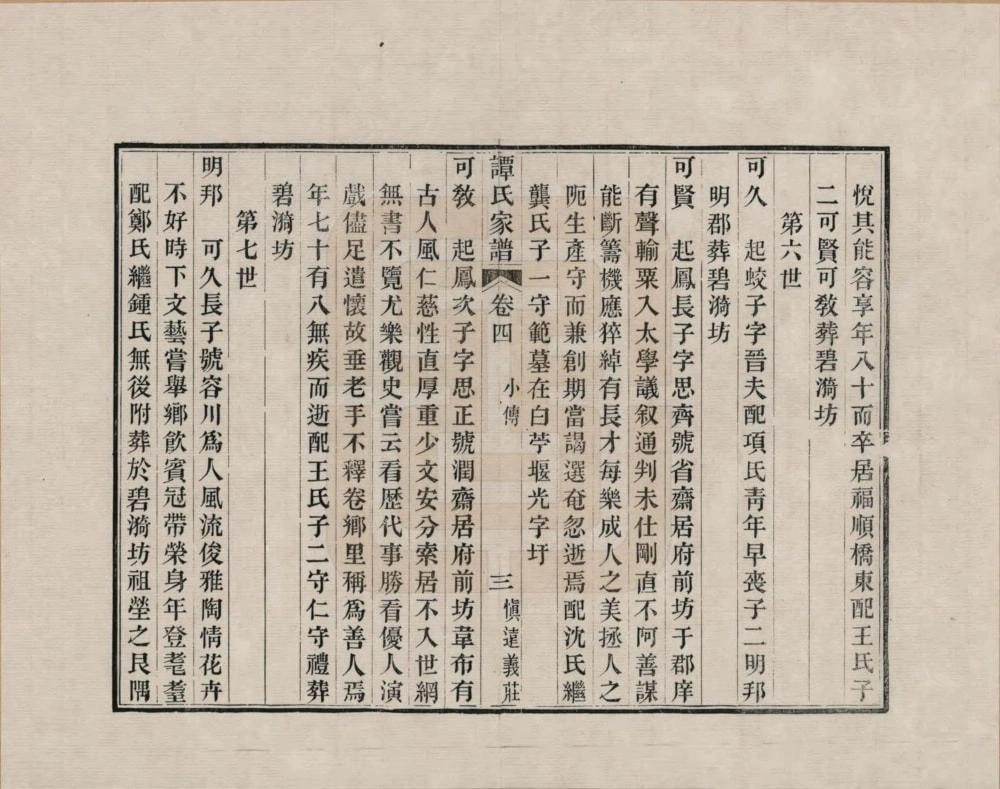 悅其能容享年八十而卒居福順橋東配王氏子
二可賢可敎葬碧漪坊
第六世
可久　起蛟子字晉夫配項氏靑年早喪子二明邦
明郡葬碧漪坊
可賢　起鳳長子字思齊號省齋居府前坊于郡庠
有聲輸粟入太學議叙通判未仕剛直不阿善謀
能斷籌機應猝綽有長才每樂成人之美拯人之
阨生產守而兼創期當謁選奄忽逝焉配沈氏繼
龔氏子一守範墓在白苧堰光字圩
譚氏家譜　卷四　小傳　三　愼遠義莊
可敎　起鳳次子字思正號潤齋居府前坊韋布有
古人風仁慈性直厚重少文安分索居不入世網
無書不覽尤樂觀史嘗云看歷代事勝看優人演
戲儘足遣懷故垂老手不釋卷鄕里稱爲善人焉
年七十有八無疾而逝配王氏子二守仁守禮葬
碧漪坊
第七世
明邦　可久長子號容川爲人風流俊雅陶情花卉
不好時下文藝嘗舉鄕飮賓冠帶榮身年登耄耋
配鄭氏繼鍾氏無後附葬於碧漪坊祖塋之艮隅